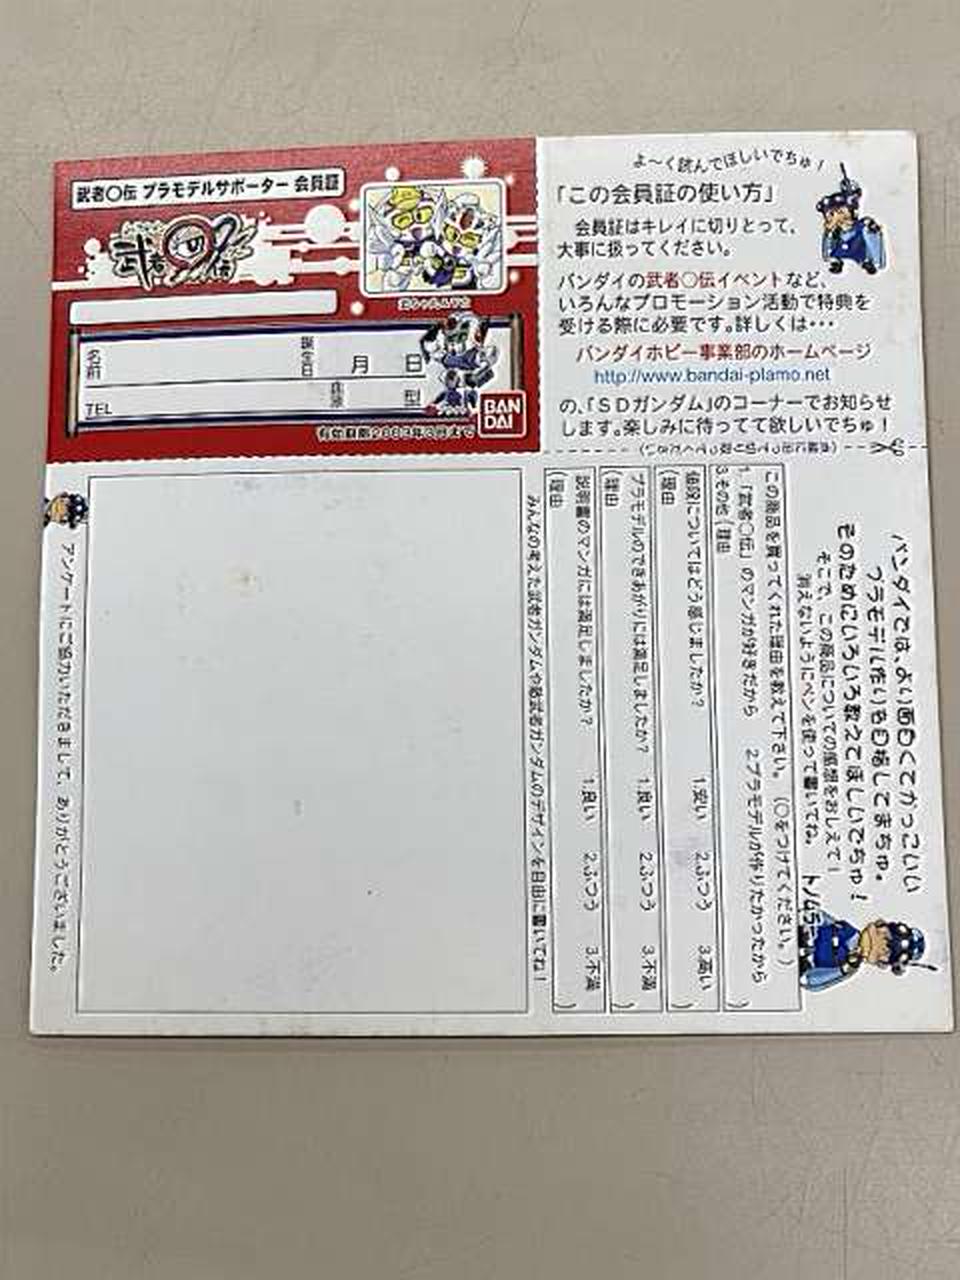 武者〇伝 プラモデルサポーター 会員証
武者〇伝
名前
誕生日
月 日
TEL
血液
型
BAN
DAI
有効期限2003年3月まで
よ〜く読んでほしいでちゅ!
「この会員証の使い方」
会員証はキレイに切りとって、
大事に扱ってください。
バンダイの武者〇伝イベントなど、
いろんなプロモーション活動で特典を
受ける際に必要です。詳しくは・・・
バンダイホビー事業部のホームページ
http://www.bandai-plamo.net
の、「SDガンダム」のコーナーでお知らせ
します。楽しみに待ってて欲しいでちゅ!
バンダイでは、より面白くてかっこいい
プラモデル作りを目指してまちゅ。
そのためにいろいろ教えてほしいでちゅ!
そこで、この商品についての感想をおしえて!
消えないようにペンを使って書いてね。
この商品を買ってくれた理由を教えて下さい。(〇をつけてください。)
1.「武者〇伝」のマンガが好きだから 2.プラモデルが作りたかったから
3.その他(理由 )
値段についてはどう感じましたか? 1.安い 2.ふつう 3.高い
(理由 )
プラモデルのできあがりには満足しましたか? 1.良い 2.ふつう 3.不満
(理由 )
説明書のマンガには満足しましたか? 1.良い 2.ふつう 3.不満
(理由 )
みんなの考えた武者ガンダムや敵武者ガンダムのデザインを自由に書いてね!
アンケートにご協力いただきまして、ありがとうございました。